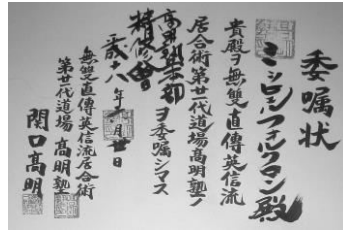 委嘱状
ミシロルフォルクマン殿
貴殿ヲ無雙直傳英信流
居合術第廿代道場高明塾ノ
ヲ委嘱シマス
年 月 日
無雙直傳英信流居合術
第廿代道場 高明塾
関口高明